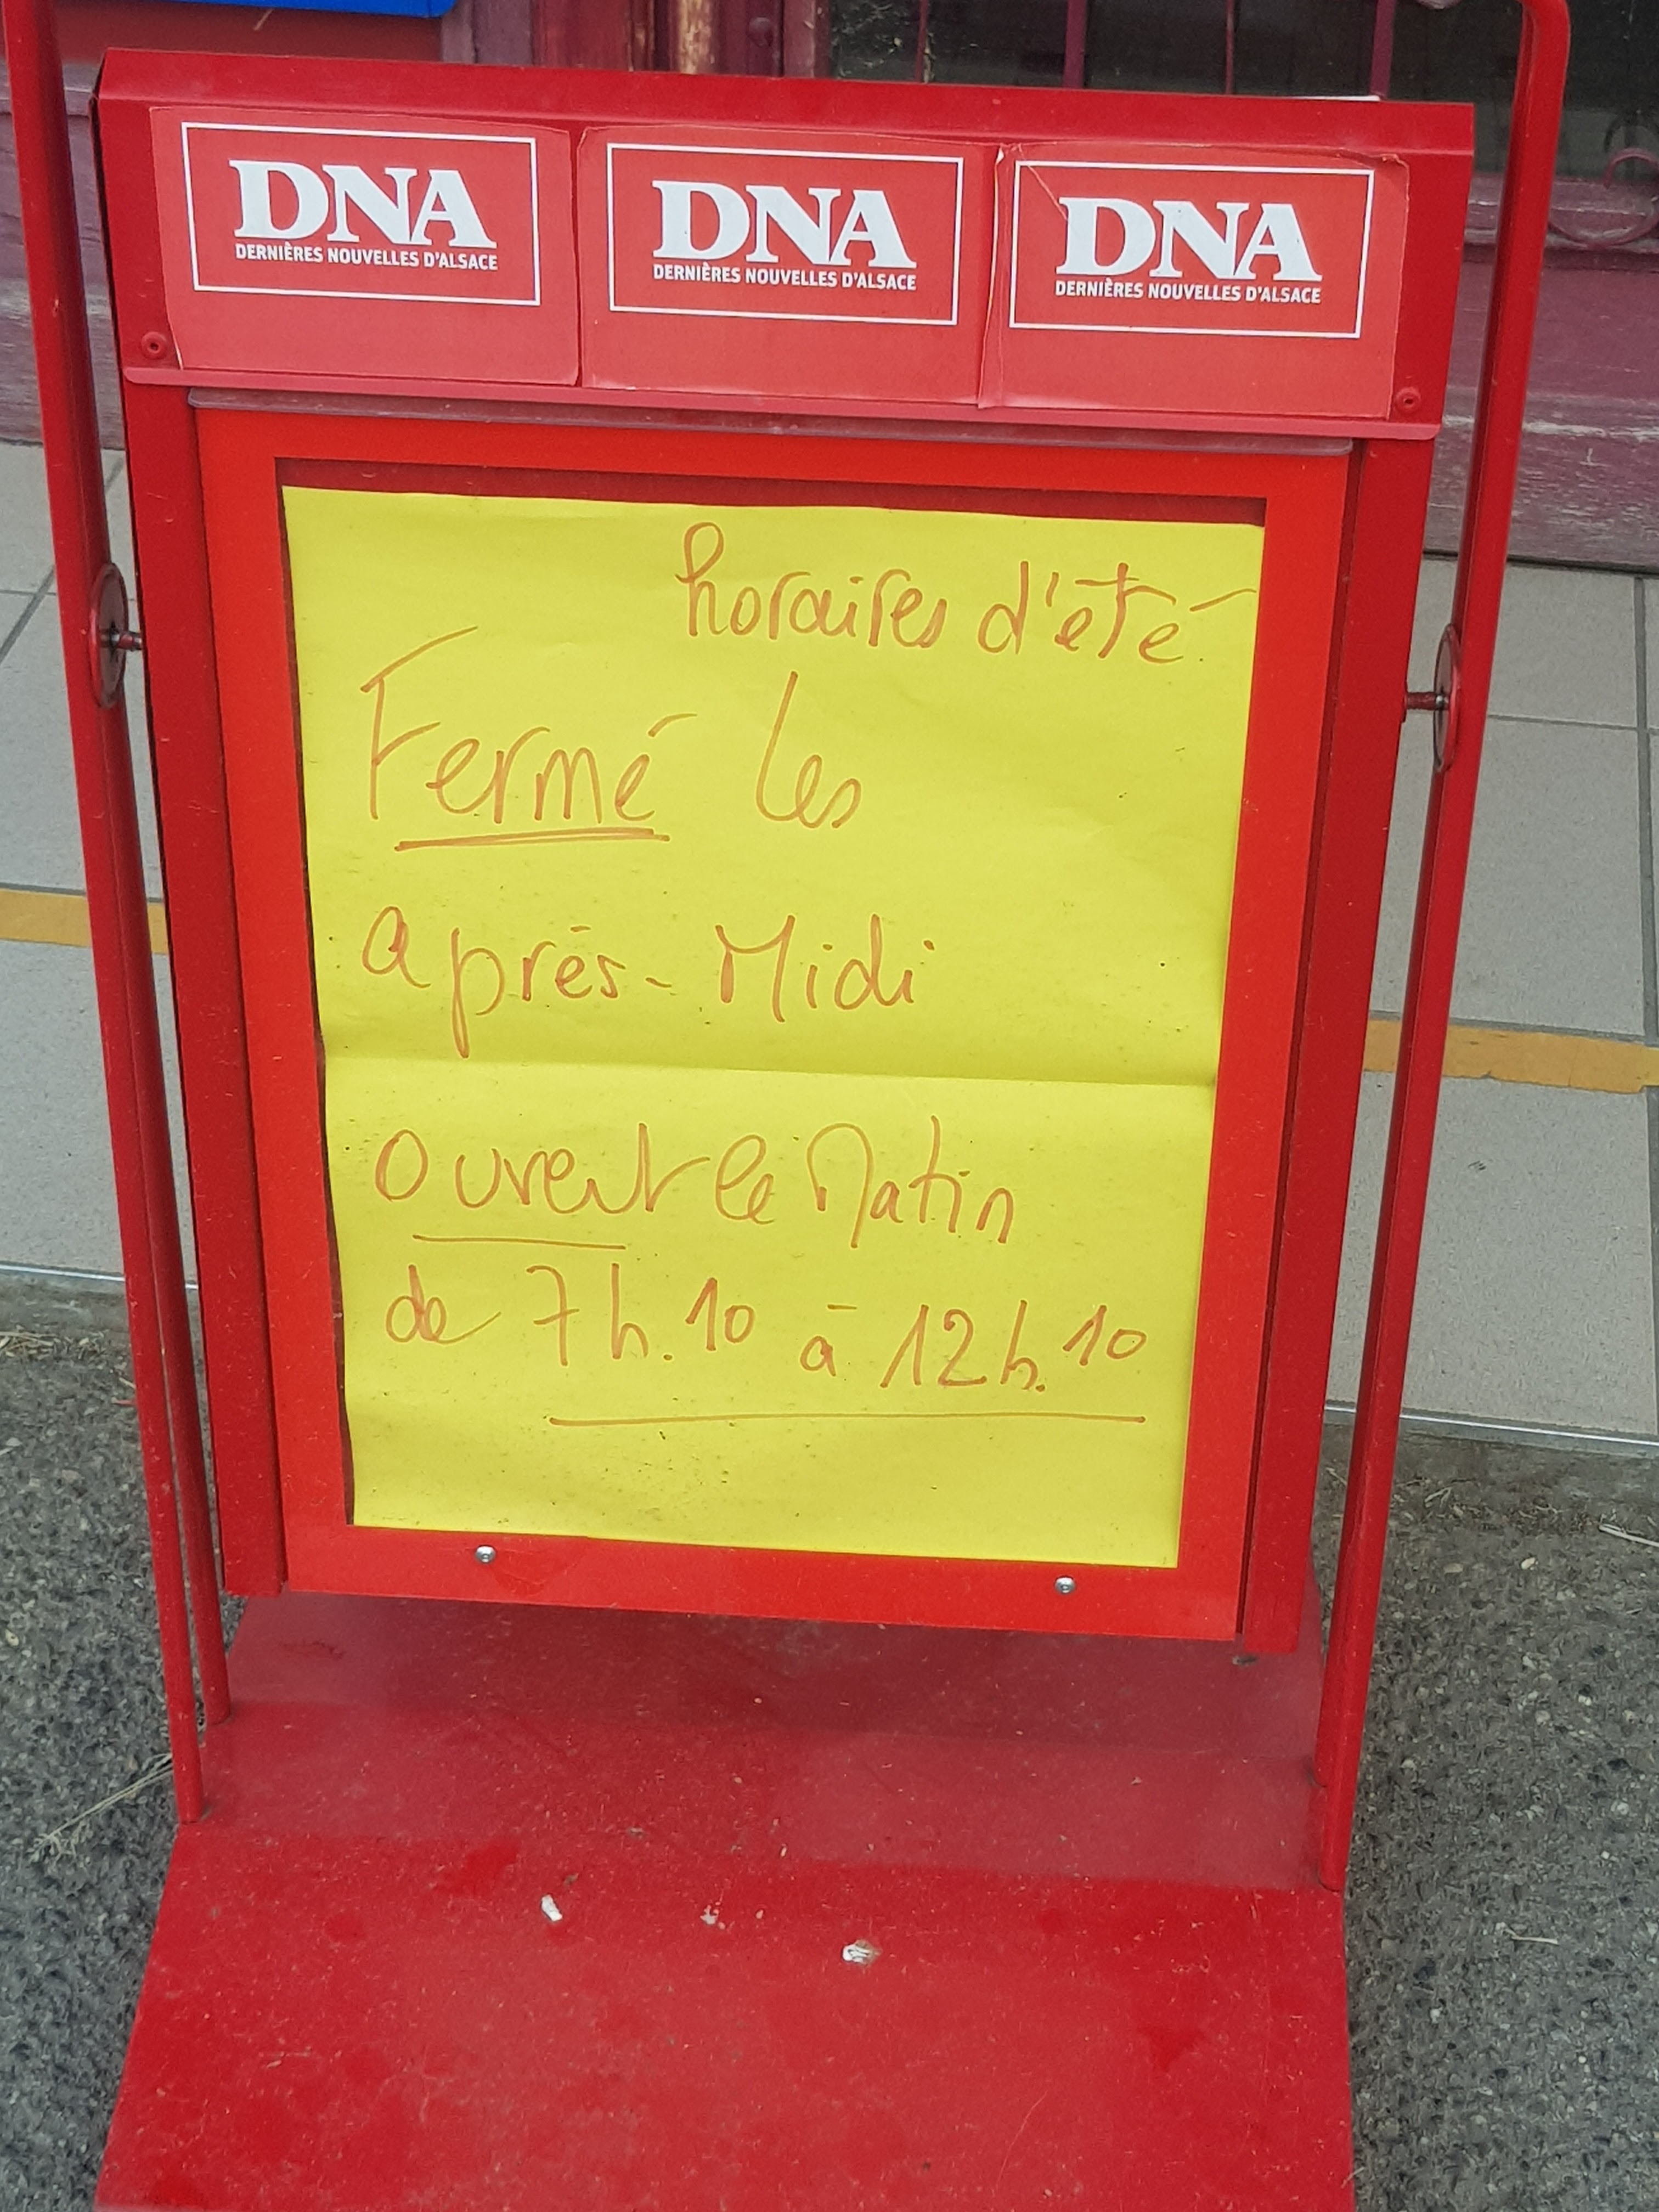 DNA
DERNIÈRES NOUVELLES D'ALSACE
DNA
DERNIÈRES NOUVELLES D'ALSACE
DNA
DERNIÈRES NOUVELLES D'ALSACE
horaires d'été
Fermé les
après-Midi
ouvert le Matin
de 7h.10 à 12h.10